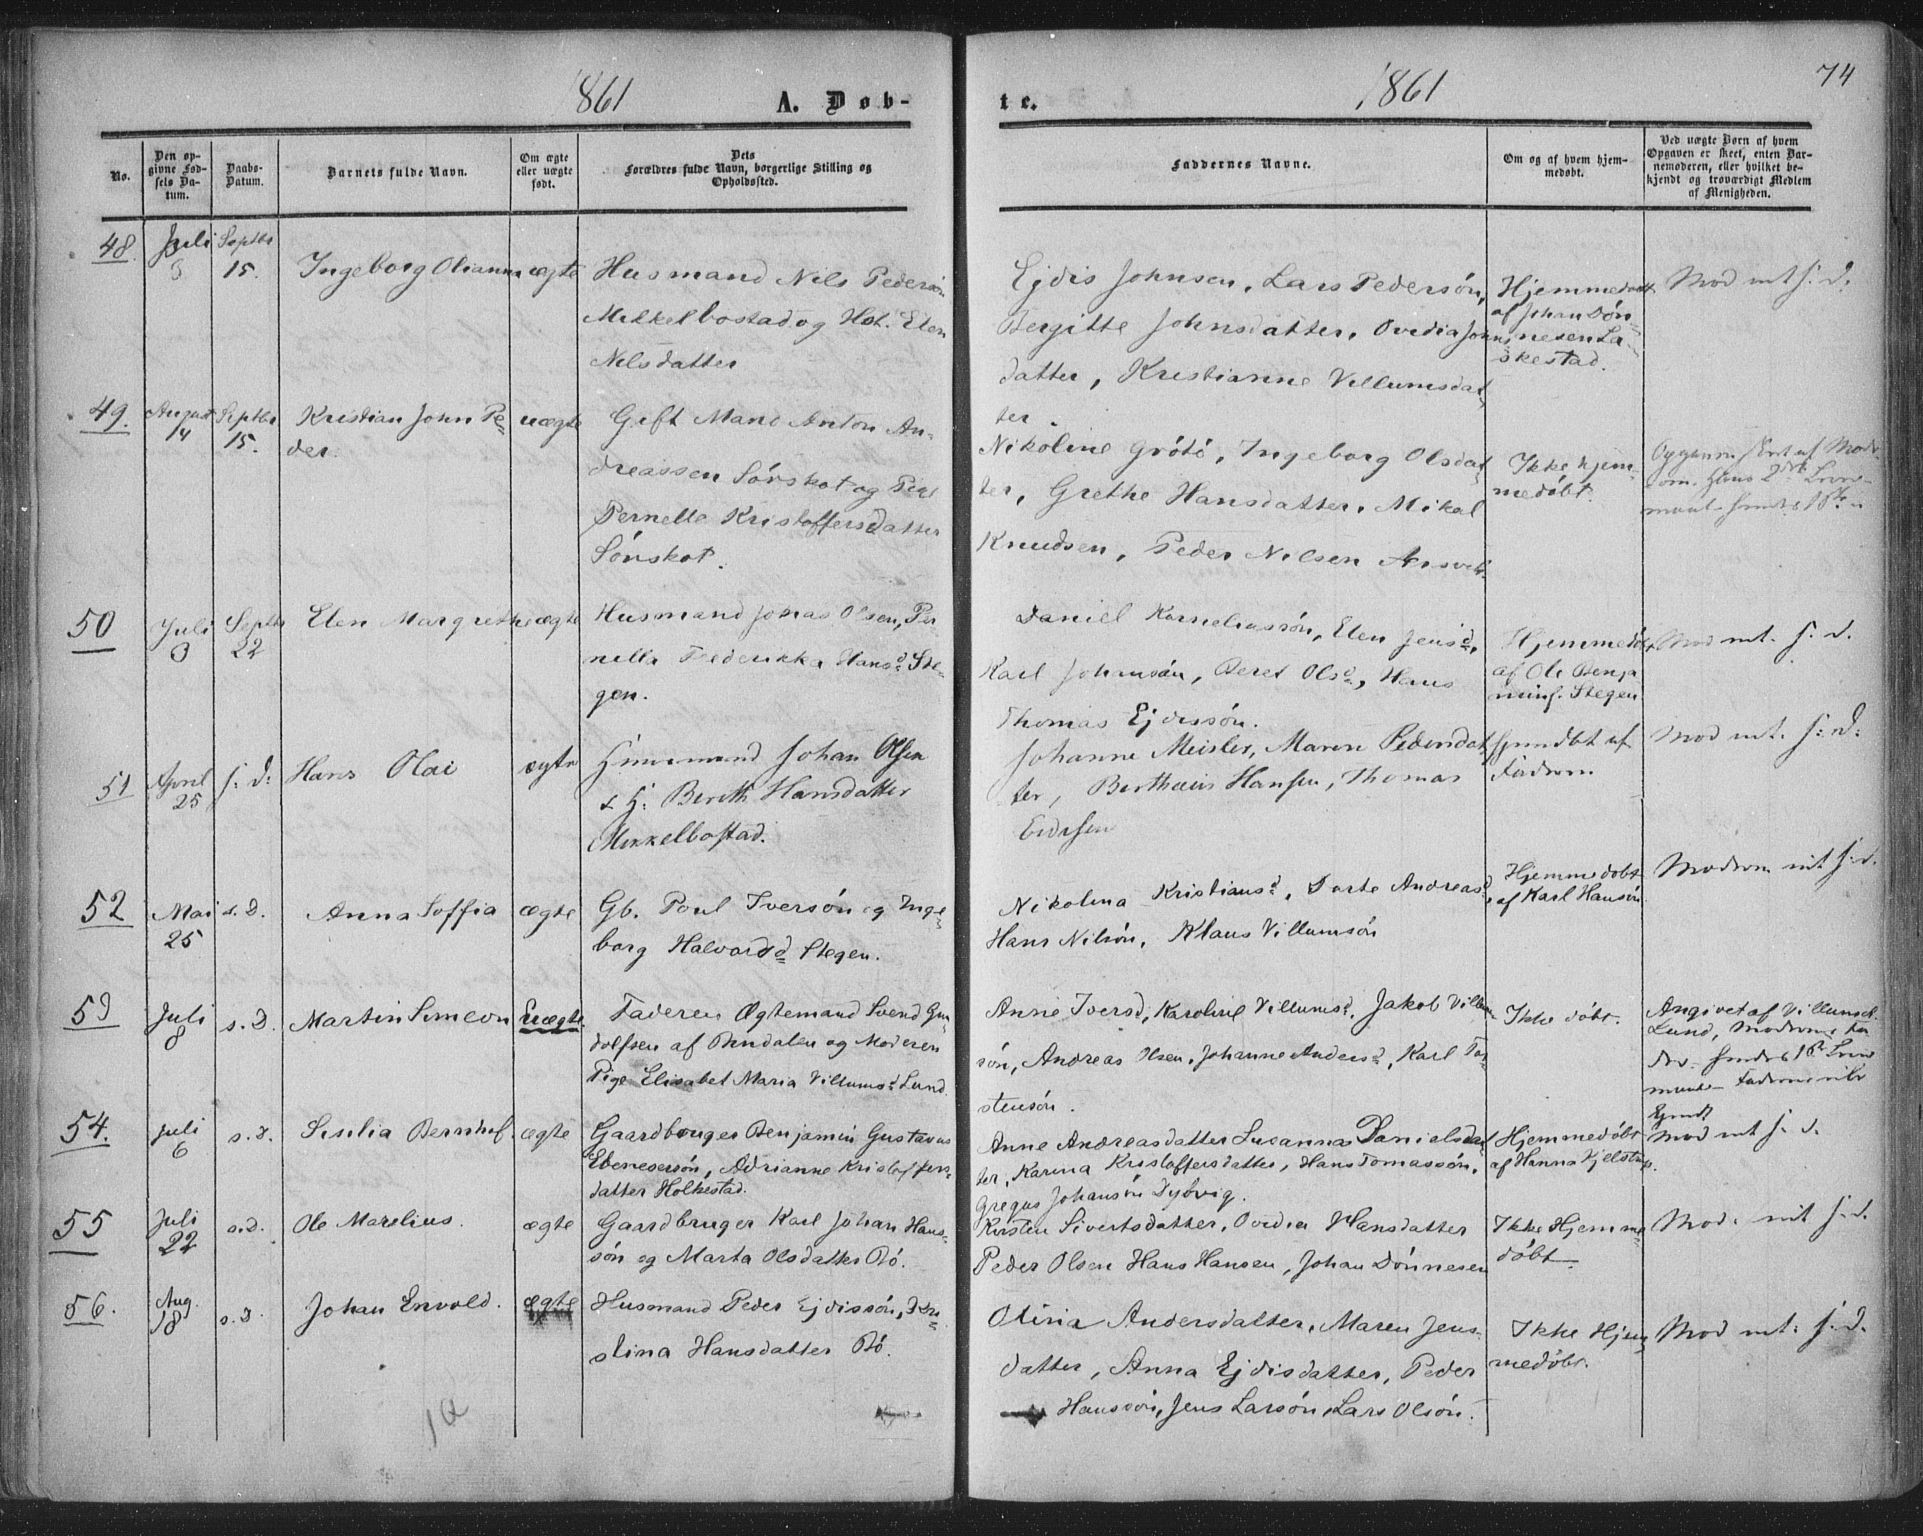 1861 A. Døb-
te. 1861 74
No.
Den op-
givne Fød-
sels Da-
tum.
Daabs-
Datum.
Barnets fulde Navn.
Om ægte
eller uægte
født.
Dets
Forældres fulde Navn, borgerlige Stilling og
Opholdssted.
Faddernes Navne.
Om og af hvem hjem-
medøbt.
Ved uægte Børn af hvem
Opgaven er skeet, enten Bar-
nemoderen, eller hvilket be-
kjendt og troværdigt Medlem
af Menigheden.
48. Juli
Septbr
15.
Ingeborg Olianna
ægte
Husmand Nils Pedersøn
Mikkelbostad og Hst. Elen
Nilsdatter
Ejdis Johnsen, Lars Pedersøn,
Bergitte Johnsdatter, Ovidia Johns
datter, Kristianne Villumsdat
ter
Hjemmedøbt
af Johan Døn-
nesen La-
skestad.
Mod mt s. d.
49. August
14
Septbr
15.
Kristian John Pe-
der.
uægte
Gift Mand Anton An-
dreassen Sørskot og Pige
Pernelle Kristoffersdatter
Sørskot.
Nikoline Grøtø, Ingeborg Olsdat
ter, Grethe Hansdatter, Mikal
Knudsen, Peder Nilsen
Ikke hjem-
medøbt.
50 Juli
Septbr
22
Elen Margrethe
ægte
Husmand Jonas Olsen, Per-
nella Frederikka Hansd. Ste-
gen.
Daniel Korneliussøn, Elen Jensd.,
Karl Johansøn, Beret Olsd., Hans
Thomas Ejdissøn.
Hjemmedøbt
af Ole Benja
mins. Stegen
Mod mt. s. d.
51 April
25
s. d:
Hans Olai
ægte
Huusmand Johan Olsen
& H: Berith Hansdatter
Mikkelbostad.
Johanne Meisler, Maren Pedersdat
ter, Berthæus Hansen, Thomas
Eidisen
Hjemdbt af
Faderen
Mod mt. s: d:
52 Mai
25
s. d.
Anna Soffia
ægte
Gb. Poul Iversøn og Inge-
borg Halvordsd. Stegen.
Nikolina Kristiansd., Dorte Andreasd.,
Hans Nilsøn, Klaus Villumsøn
Hjemmedøbt
af Karl Hansøn
Moderen mt s. d.
53 Juli
8
s. d.
Martin Simeon
Uægte
Faderen Ægtemand Svend Gun-
dolfsen af Bindalen og Moderen
Pige Elisabet Maria Villumsd. Lund.
Anne Iversd., Karoline Villumsd., Jakob Villum
søn, Andreas Olsen, Johanne Andersd., Karl Tor
stensøn.
Ikke døbt.
Angivet af Villumsd.
Lund, Moderens
54. Juli
6
s. d.
Sisilia Bernhof.
ægte
Gaardbruger Benjamin Gustavus
Ebenesersøn, Adrianne Kristoffers-
datter Holkestad.
Anne Andreasdatter Susannas Danielsdat
ter, Karina Kristoffersdatter, Hans Tomassøn,
Gregus Johansøn Dybvig.
Hjemmedøbt
af Hanna Kjelstrup.
Mod mt s. d.
55 Juli
22
s. d.
Ole Marelius.
ægte
Gaardbruger Karl Johan Hans-
søn og Marta Olsdatter Bø.
Kirsten Sivertsdatter, Ovidia Hansdatter
Peder Olsen Hans Hansen, Johan Dønnesen
Ikke Hjemme-
døbt
Mod. mt s. d.
56. Aug.
18
s. d.
Johan Envold.
ægte
Husmand Peder Ejdissøn, Kri-
stina Hansdatter Bø.
Olina Andersdatter, Maren Jens-
datter, Anna Ejdisdatter, Peder
Hanssøn, Jens Larsøn, Lars Olsøn.
Ikke Hjem-
medøbt.
Mod mt. s. d.